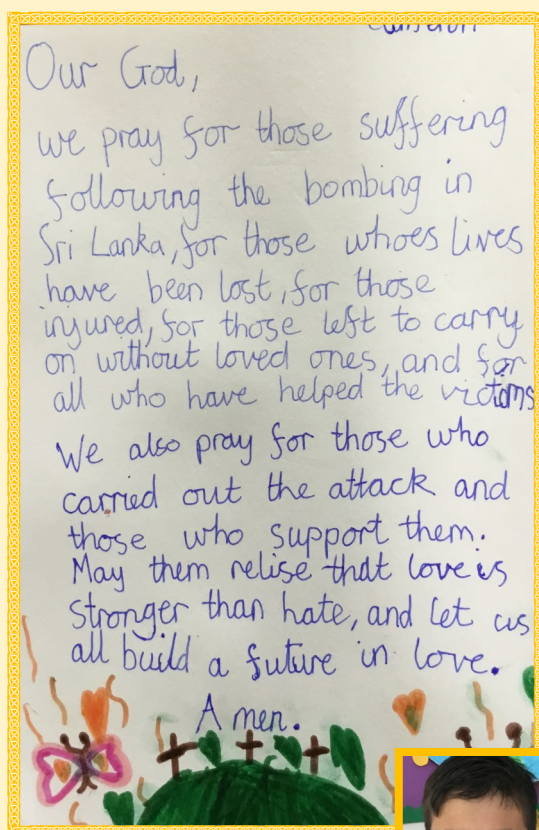 Our God,
we pray for those suffering
following the bombing in
Sri Lanka, for those whoes lives
have been lost, for those
injured, for those left to carry
on without loved ones, and for
all who have helped the victims
We also pray for those who
carried out the attack and
those who support them.
May them relise that love is
stronger than hate, and let us
all build a future in love.
Amen.